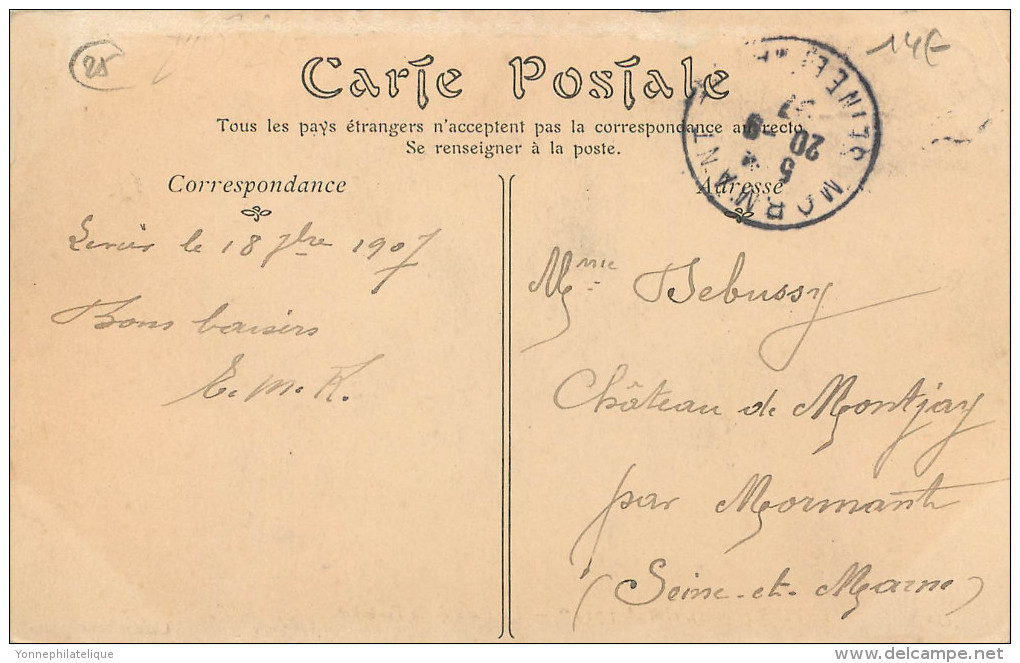 25
14€
Carte Postale
Tous les pays étrangers n'acceptent pas la correspondance au recto.
Se renseigner à la poste.
Correspondance
Adresse
MORMANT
SEINE ET
5
20 -9
Levier le 18 7bre 1907
Bons baisers
E. M. K.
Mme Debussy
Château de Montjay
par Mormant
(Seine-et-Marne)
Yonnephilatelique
delcampe.net